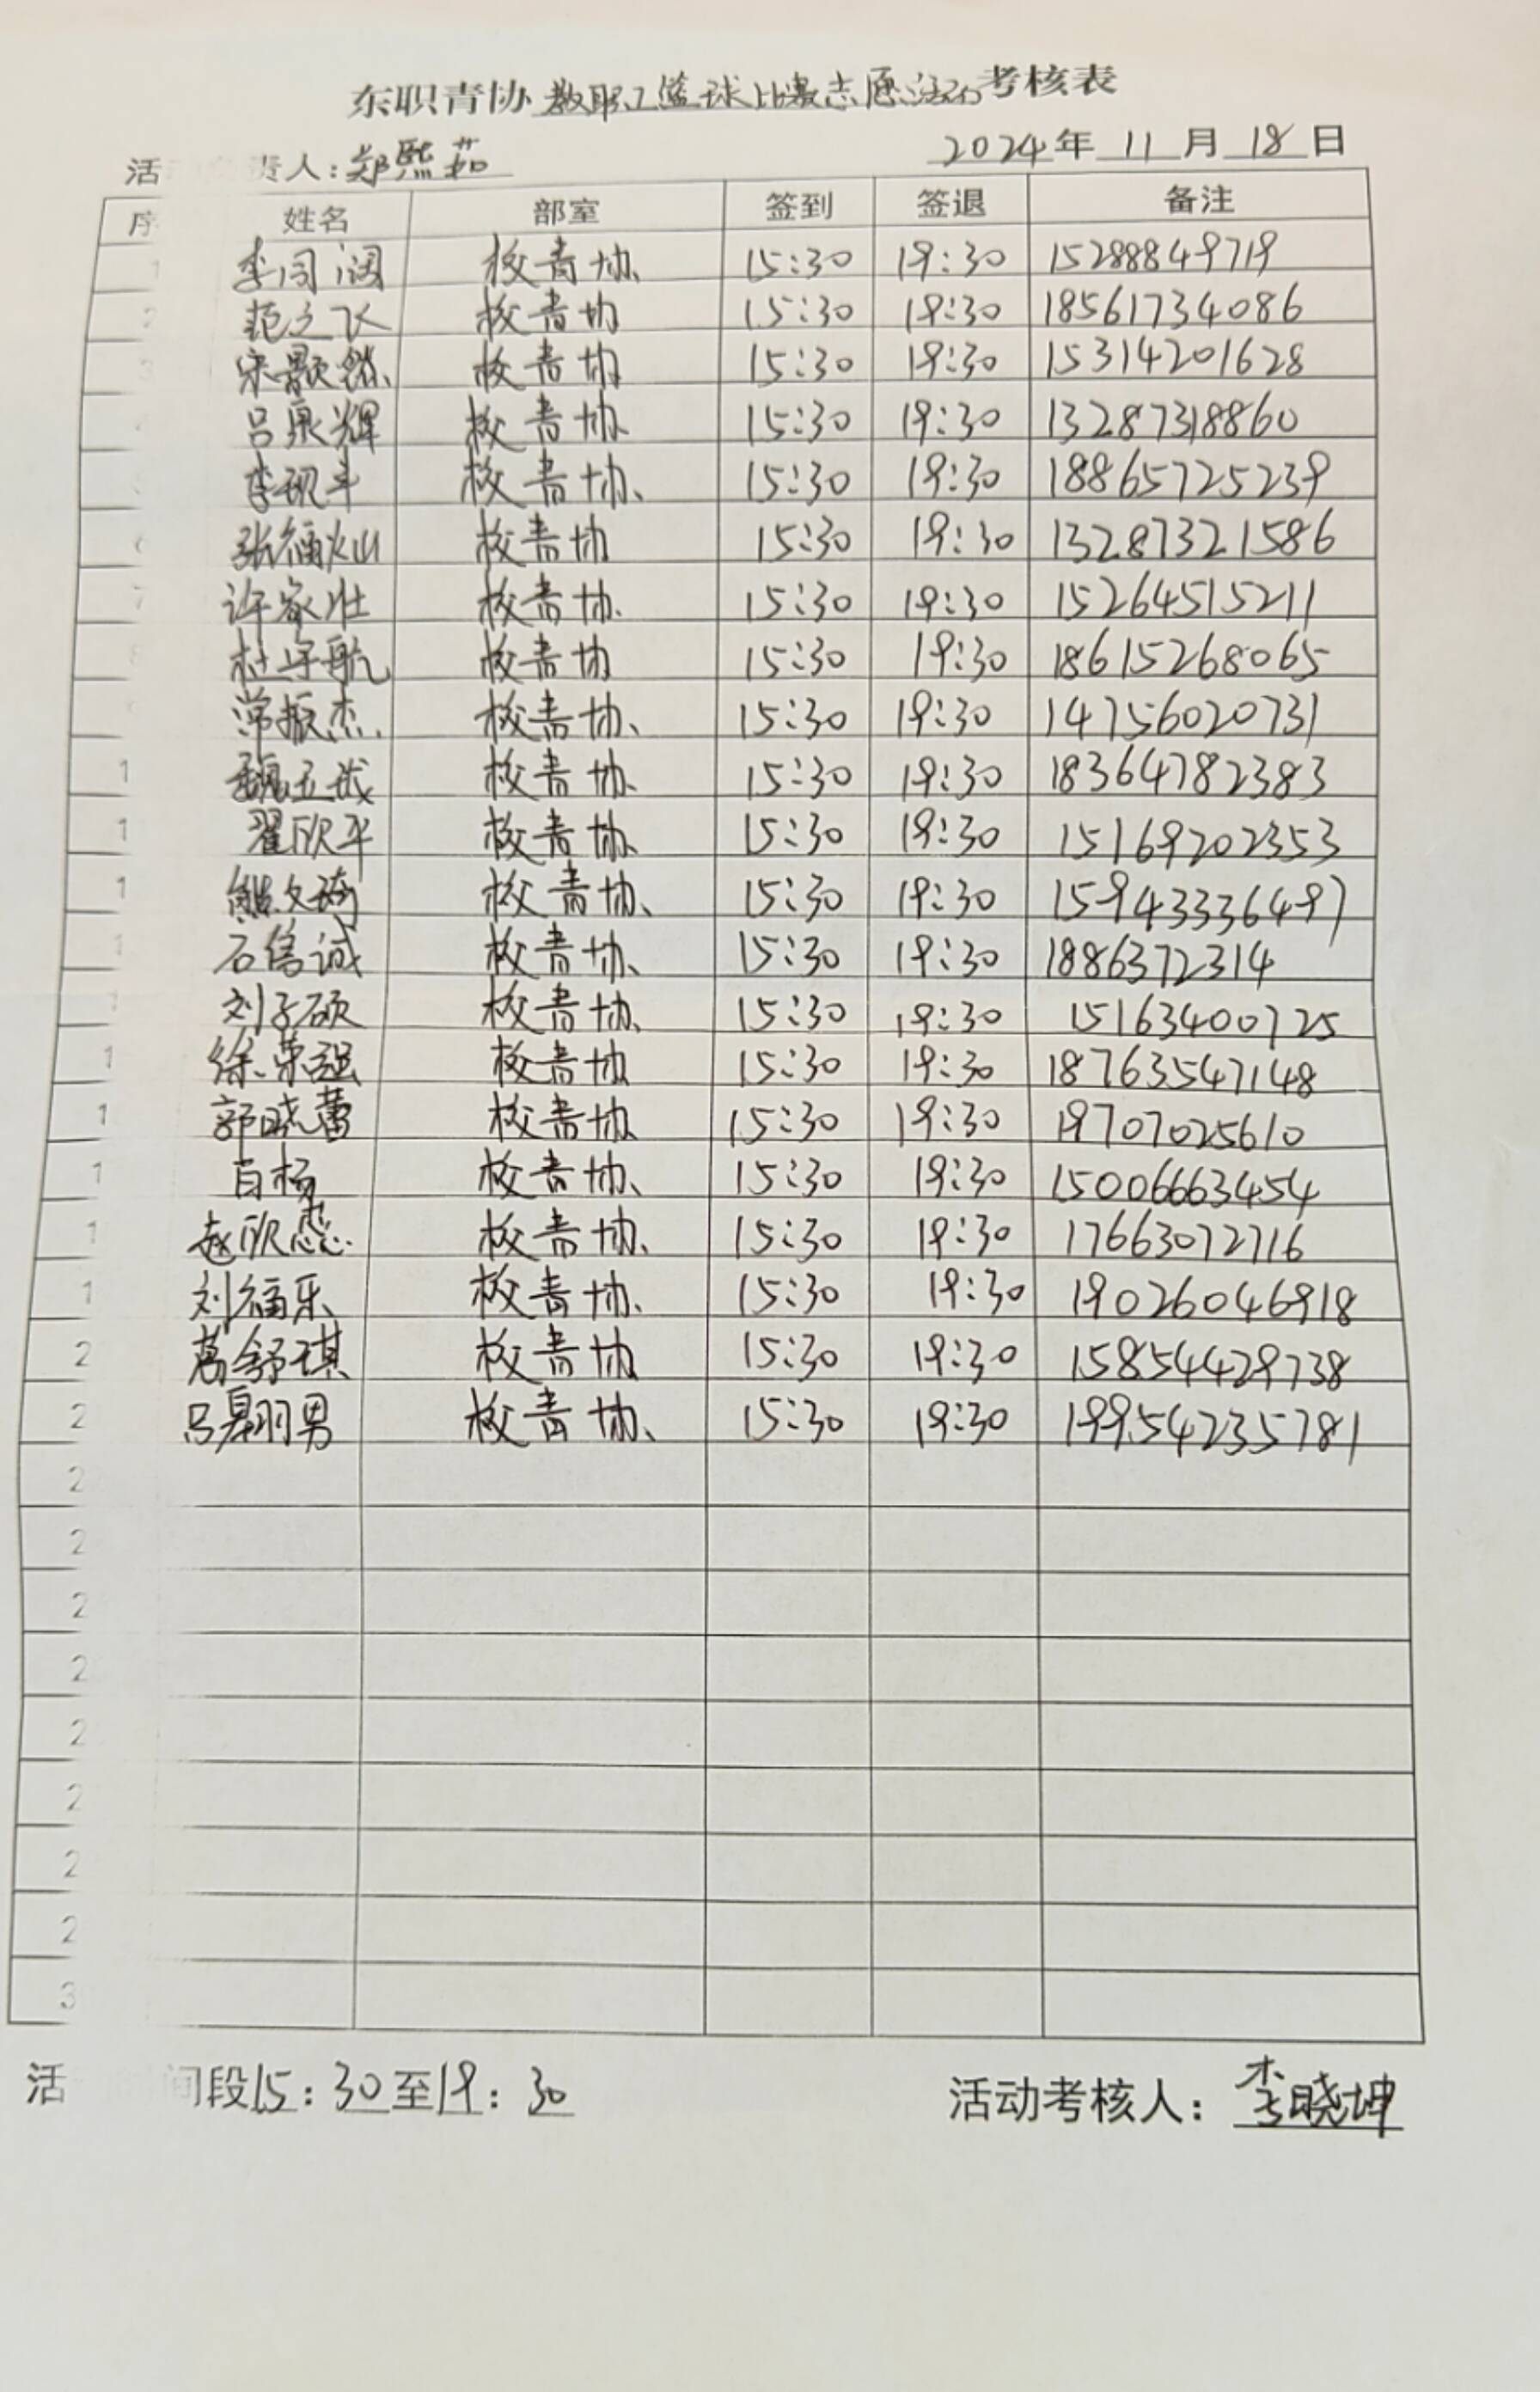 东职青协 教职工篮球比赛志愿活动 考核表
活 责人：郑熙茹 2024年 11月 18日
序 姓名 部室 签到 签退 备注
1 李闫润 校青协 15:30 19:30 15288849719
2 范之飞 校青协 15:30 19:30 18561734086
3 宋颢 校青协 15:30 19:30 15314201628
吕泉辉 校青协 15:30 19:30 13287318860
李砚平 校青协 15:30 19:30 18865725239
6 张福灿 校青协 15:30 19:30 13287321586
7 许家壮 校青协 15:30 19:30 15264515211
8 杜宇航 校青协 15:30 19:30 18615268065
常振杰 校青协 15:30 19:30 14756020731
1 魏五成 校青协 15:30 19:30 18364782383
1 翟欣平 校青协 15:30 19:30 15169202353
1 熊文琦 校青协 15:30 19:30 15943336497
1 石信诚 校青协 15:30 19:30 1886372314
1 刘子硕 校青协 15:30 19:30 15163400725
1 徐荣强 校青协 15:30 19:30 18763547148
1 郭晓蕾 校青协 15:30 19:30 19707025610
1 白杨 校青协 15:30 19:30 150066663454
1 赵欣悫 校青协 15:30 19:30 17663072716
1 刘福乐 校青协 15:30 19:30 19026046918
2 葛舒琪 校青协 15:30 19:30 15854429738
2 吕翱男 校青协 15:30 19:30 19954235781
2
2
2
2
2
2
2
2
3
活 间段15：30至19：30 活动考核人：李晓坤